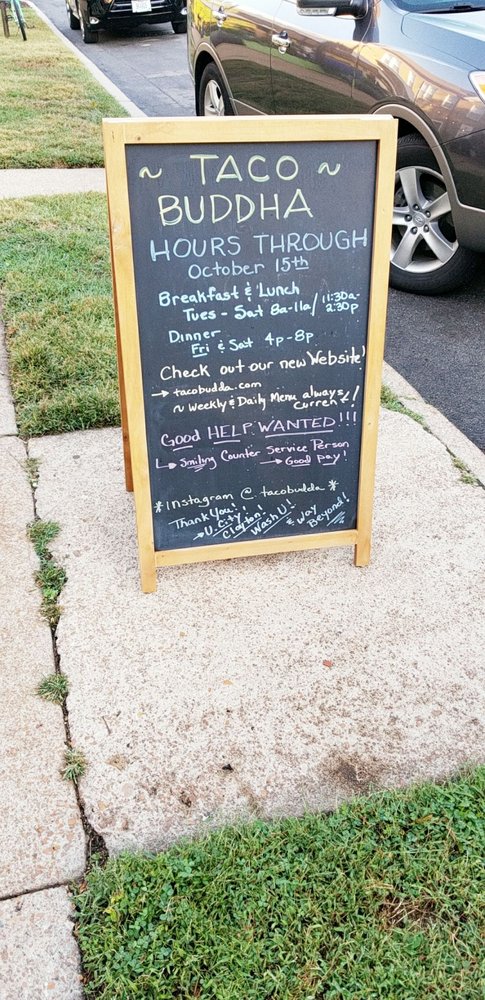 ~ TACO ~
BUDDHA
HOURS THROUGH
October 15th
Breakfast & Lunch
Tues - Sat 8a-11a / 11:30a-2:30p
Dinner
Fri & Sat 4p-8p
Check out our new Website!
→ tacobudda.com
~ Weekly & Daily Menu always current!
Good HELP WANTED!!!
↳ Smiling Counter Service Person
→ Good pay!
*Instagram @ tacobudda *
Thank You!
→ U. City! Clayton! Wash U! & Way Beyond!